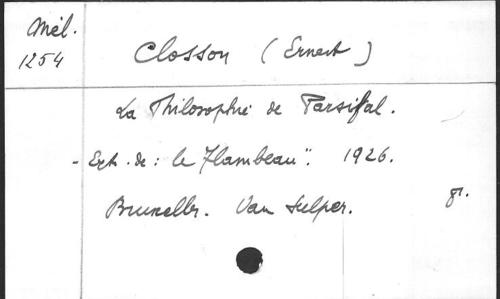 Mél.
1254
Closson (Ernest)
La Philosophie de Parsifal.
- Ext. de : le "Flambeau". 1926.
Bruxelles. Van Sulper.
gr.